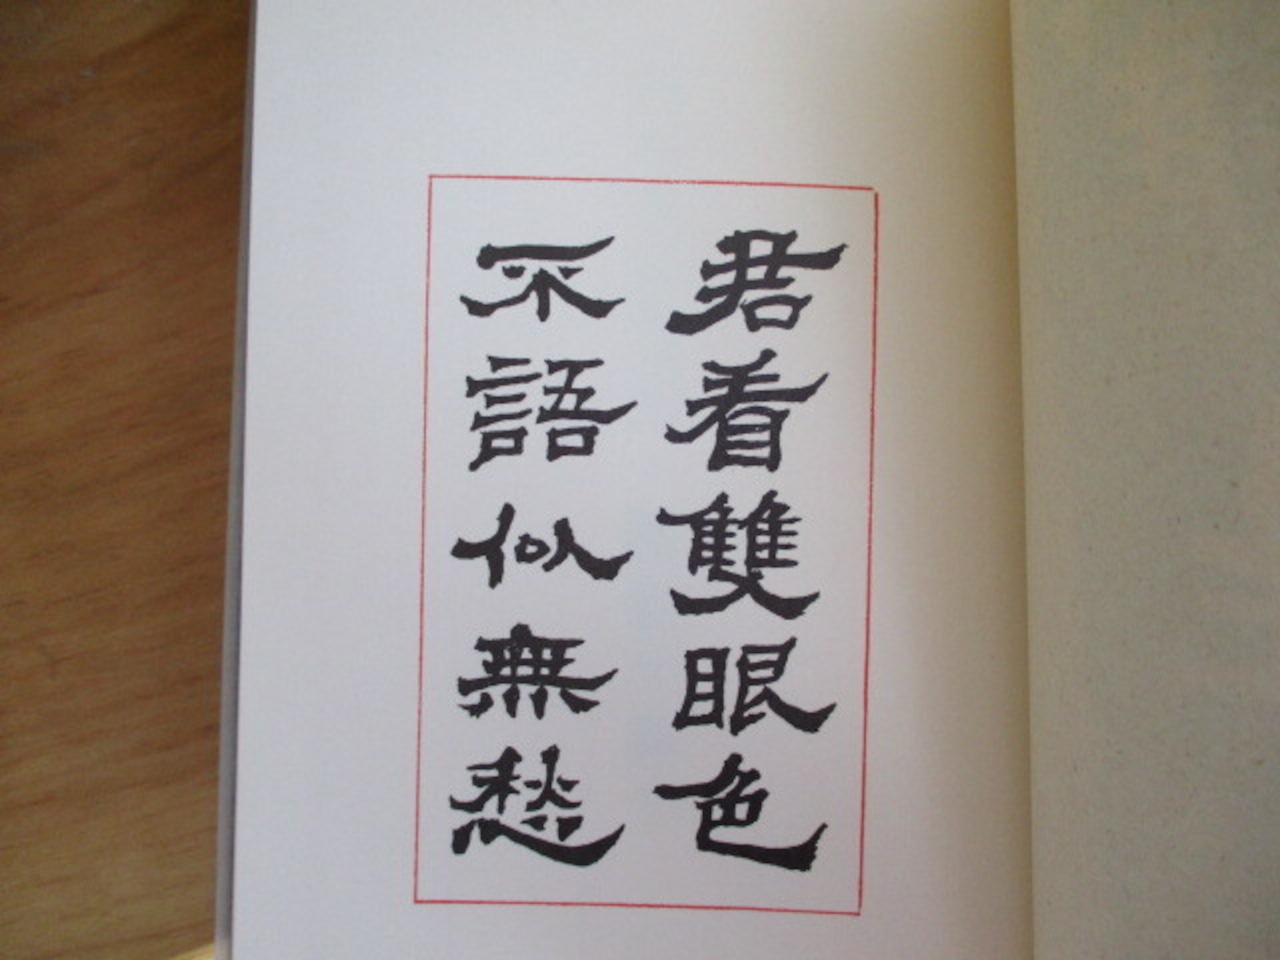 君着雙眼色
不語似無愁